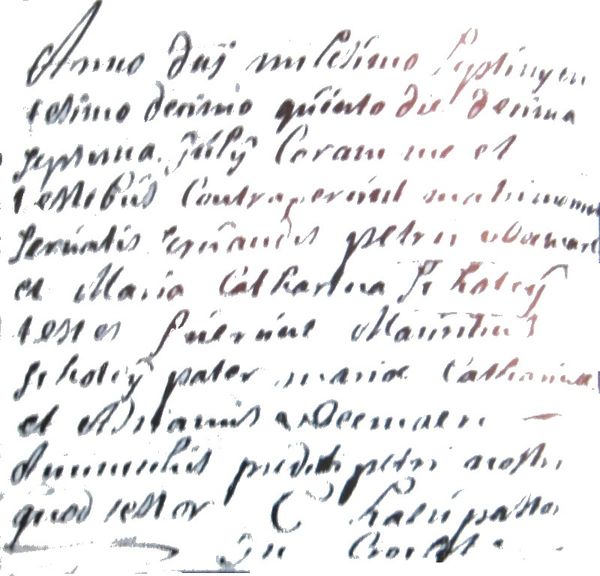 Anno dnj milesimo septingen
tesimo decimo quinto die decima
septima july Coram me et
testibus Contraxerunt matrimonium
servatis servandis petrus
et Maria Catharina Scholeÿ
testes fuerunt Mauritius
Scholeÿ pater mariæ Catharinæ
et Adrianus
famulus predicti petri
quod testor C pastor
in